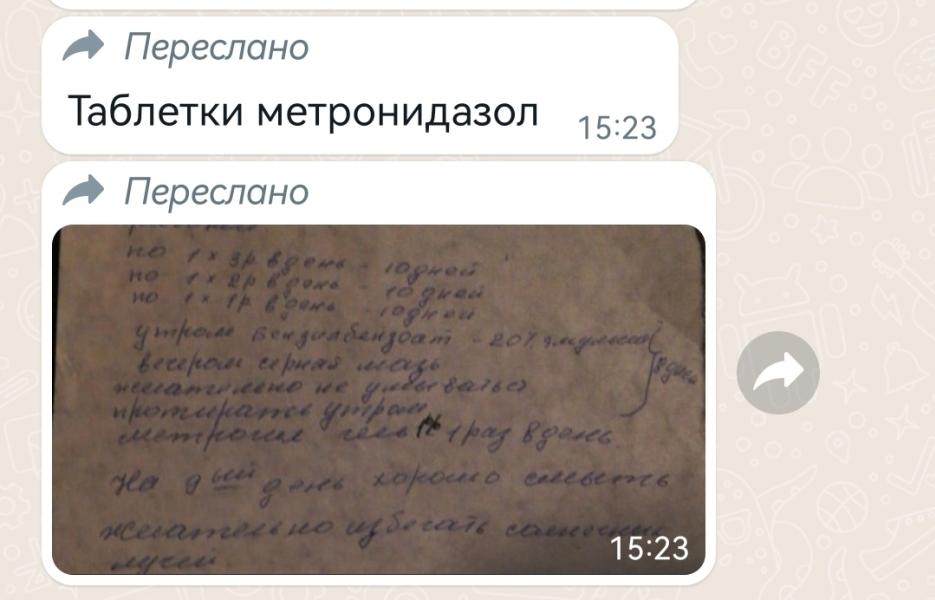 Переслано
Таблетки метронидазол
15:23
Переслано
по 1 х 3р в день - 10 дней
по 1 х 2р в день - 10 дней
по 1 х 1р в день - 10 дней
утром бензилбензоат - 20% эмульсия
вечером серная мазь
8 дней
желательно не умываться
протирать утром
метрогил гель 1 раз в день
На 9 ый день хорошо смыть
желательно избегать солнечных
лучей
15:23